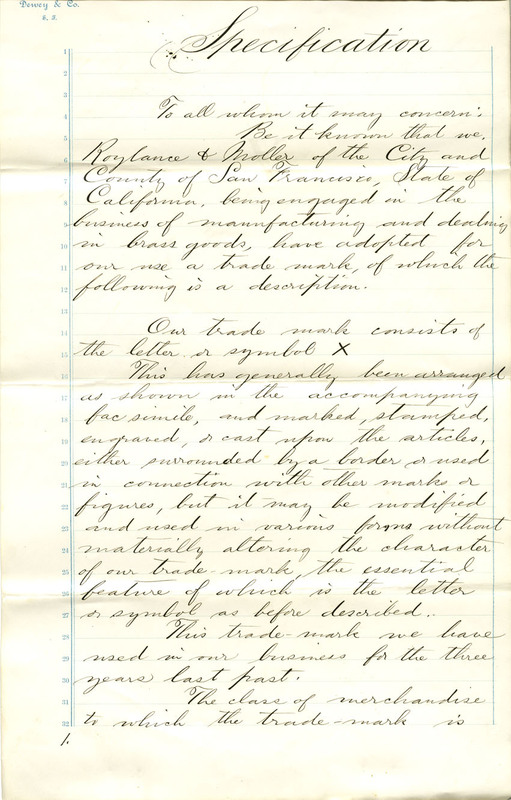 Dewey & Co.
S. F.
Specification
1
2
3
4 To all whom it may concern:
5 Be it known that we,
6 Roylance & Moller of the City and
7 County of San Francisco, State of
8 California, being engaged in the
9 business of manufacturing and dealing
10 in brass goods, have adopted for
11 our use a trade mark, of which the
12 following is a description.
13
14 Our trade mark consists of
15 the letter or symbol X
16 This has generally been arranged
17 as shown in the accompanying
18 fac simile, and marked, stamped,
19 engraved, or cast upon the articles,
20 either surrounded by a border or used
21 in connection with other marks or
22 figures, but it may be modified
23 and used in various forms without
24 materially altering the character
25 of our trade-mark, the essential
26 feature of which is the letter
27 or symbol as before described.
28 This trade-mark we have
29 used in our business for the three
30 years last past.
31 The class of merchandise
32 to which the trade-mark is
1.